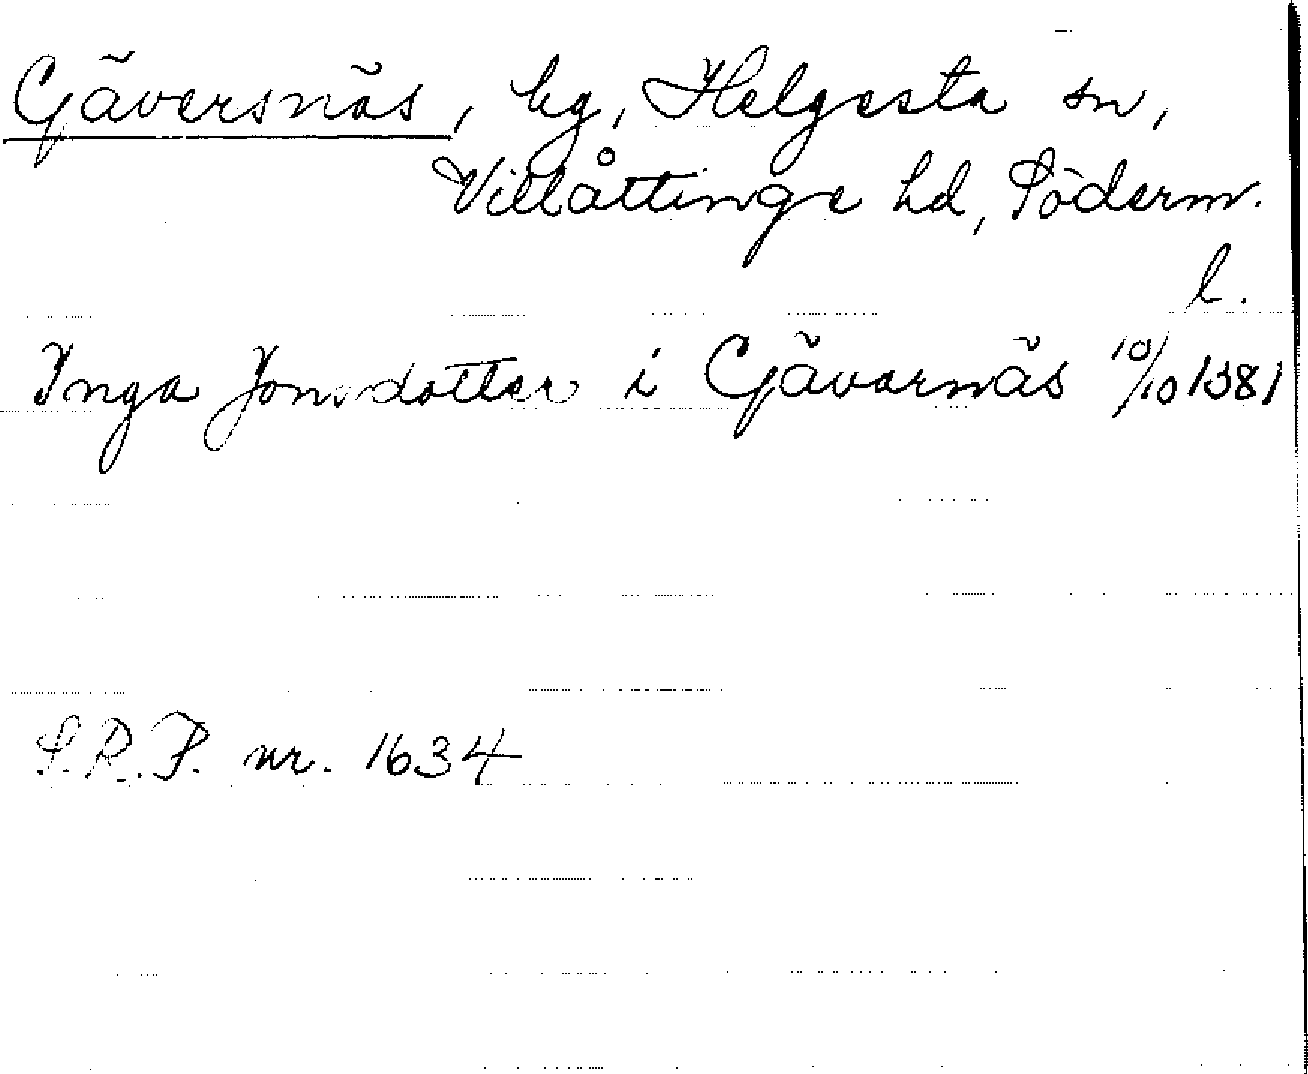 Gäversnäs, by, Helgesta sn,
Villåttinge hd, Söderm.
l.
Inga Jonsdotter i Gävarnäs 10/10 1381
S.R.P. nr. 1634